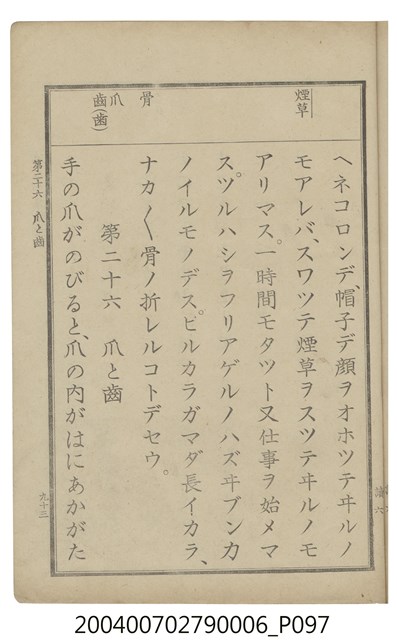 煙草
骨
爪
齒(歯)
ヘネコロンデ、帽子デ顔ヲオホツテヰルノ
モアレバ、スワツテ煙草ヲスツテヰルノモ
アリマス。一時間モタツト又仕事ヲ始メマ
ス。ツルハシヲフリアゲルノハズヰブンカ
ノイルモノデス。ピルカラガマダ長イカラ、
ナカ〱骨ノ折レルコトデセウ。
第二十六 爪と齒
手の爪がのびると、爪の内がはにあかがた
第二十六 爪と齒
九十三
200400702790006_P097